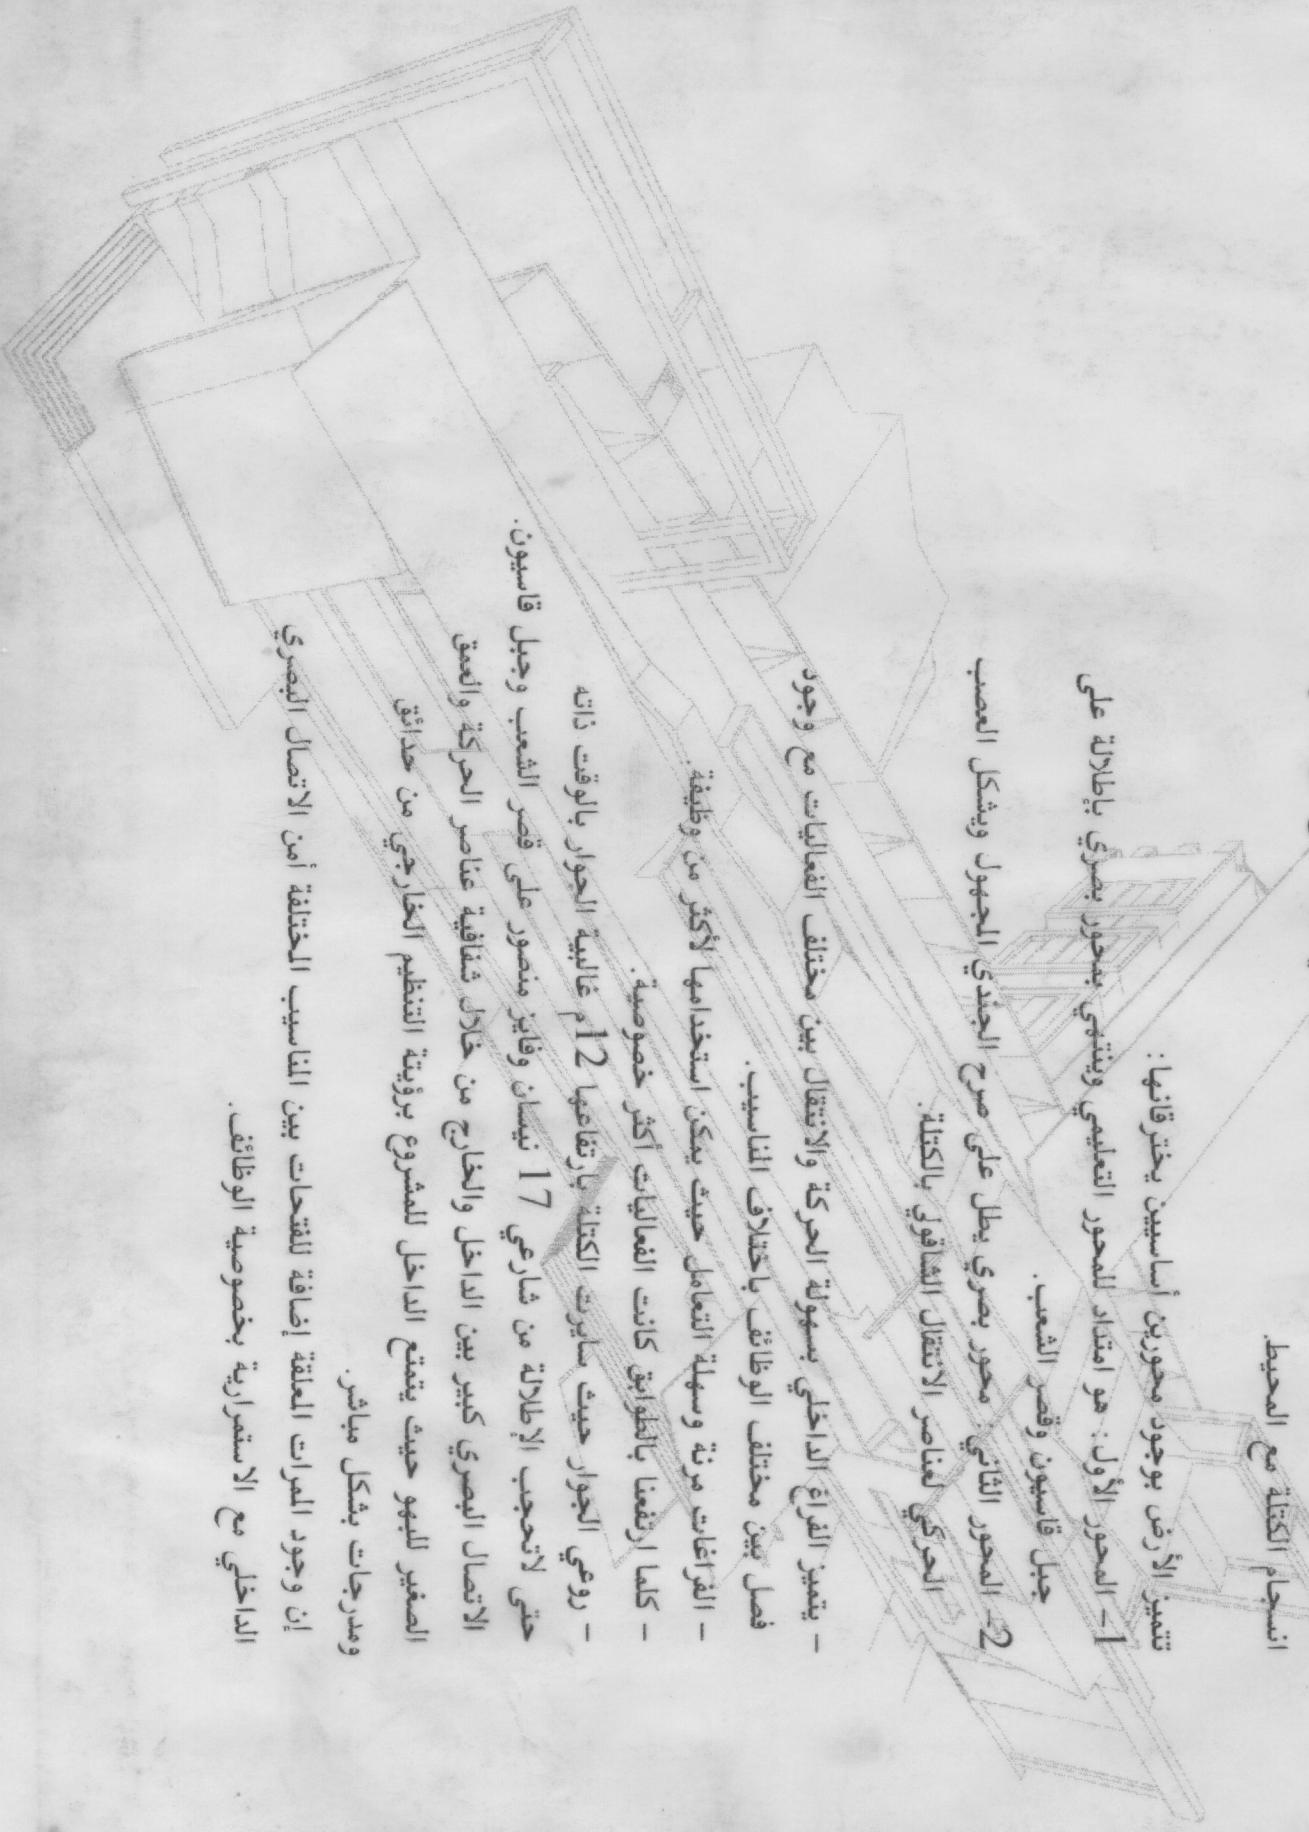 انسجام الكتلة مع المحيط.
تتميز الأرض بوجود محورين أساسيين يخترقانها:
1- المحور الأول: هو امتداد للمحور التعليمي وينتهي بمحور بصري بإطلالة على
جبل قاسيون وقصر الشعب.
2- المحور الثاني: محور بصري يطل على صرح الجندي المجهول ويشكل العصب
الحركي لعناصر الانتقال الشاقولي بالكتلة.
- يتميز الفراغ الداخلي بسهولة الحركة والانتقال بين مختلف الفعاليات مع وجود
فصل بين مختلف الوظائف باختلاف المناسيب.
- الفراغات مرنة وسهلة التعامل حيث يمكن استخدامها لأكثر من وظيفة.
- كلما ارتفعنا بالطوابق كانت الفعاليات أكثر خصوصية.
- روعي الجوار حيث سايرت الكتلة بارتفاعها 12م غالبية الجوار بالوقت ذاته
حتى لاتحجب الإطلالة من شارعي 17 نيسان وفايز منصور على قصر الشعب وجبل قاسيون.
الاتصال البصري كبير بين الداخل والخارج من خلال شفافية عناصر الحركة والعمق
الصغير للبهو حيث يتمتع الداخل للمشروع برؤيتة التنظيم الخارجي من حدائق
ومدرجات بشكل مباشر.
إن وجود الممرات المعلقة إضافة للفتحات بين المناسيب المختلفة أمن الاتصال البصري
الداخلي مع الاستمرارية بخصوصية الوظائف.